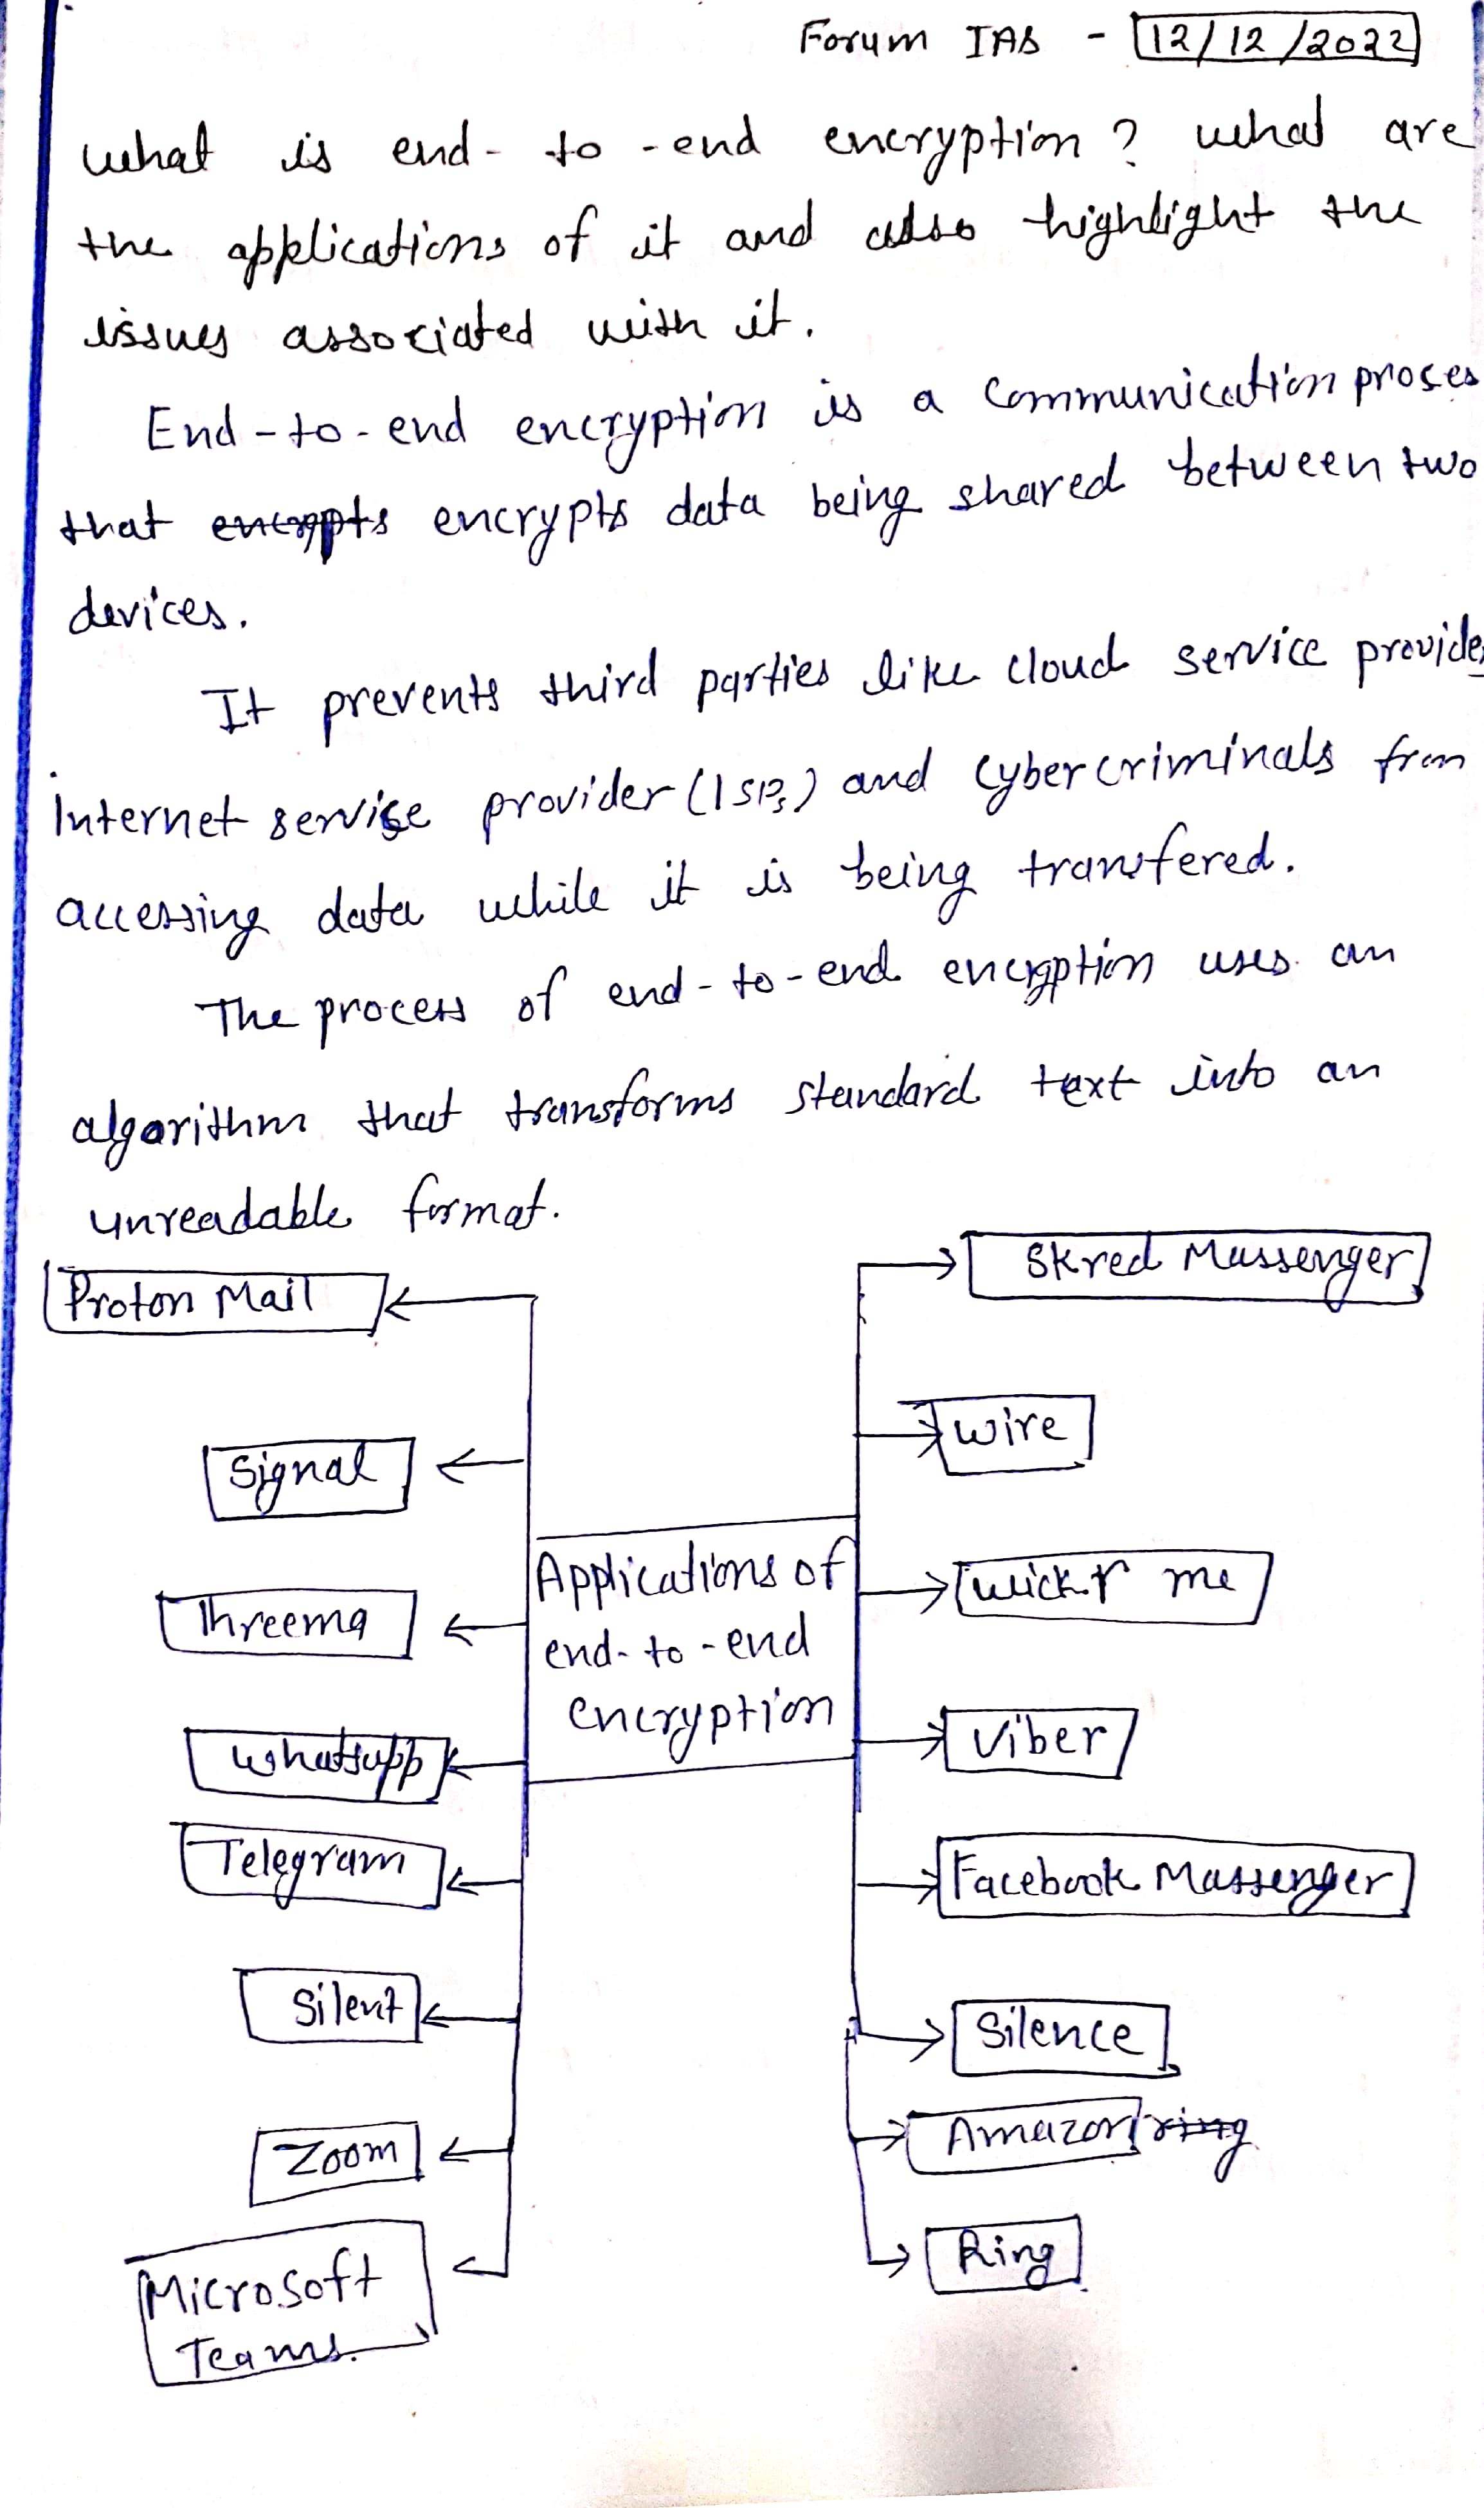 Forum IAS - 12/12/2022
what is end-to-end encryption? what are
the applications of it and also highlight the
issues associated with it.
End-to-end encryption is a communication proces
that encrypts encrypts data being shared between two
devices.
It prevents third parties like cloud service provider
Internet service provider (ISPs) and cybercriminals from
accessing data while it is being transfered.
The process of end-to-end encryption uses an
algorithm that transforms standard text into an
unreadable format.
Proton Mail
Signal
Threema
Whatsupp
Telegram
Silent
Zoom
Microsoft
Teams.
Applications of
end-to-end
encryption
Skred Massenger
Wire
wickr me
Viber
Facebook Massenger
Silence
Amazon ring
Ring